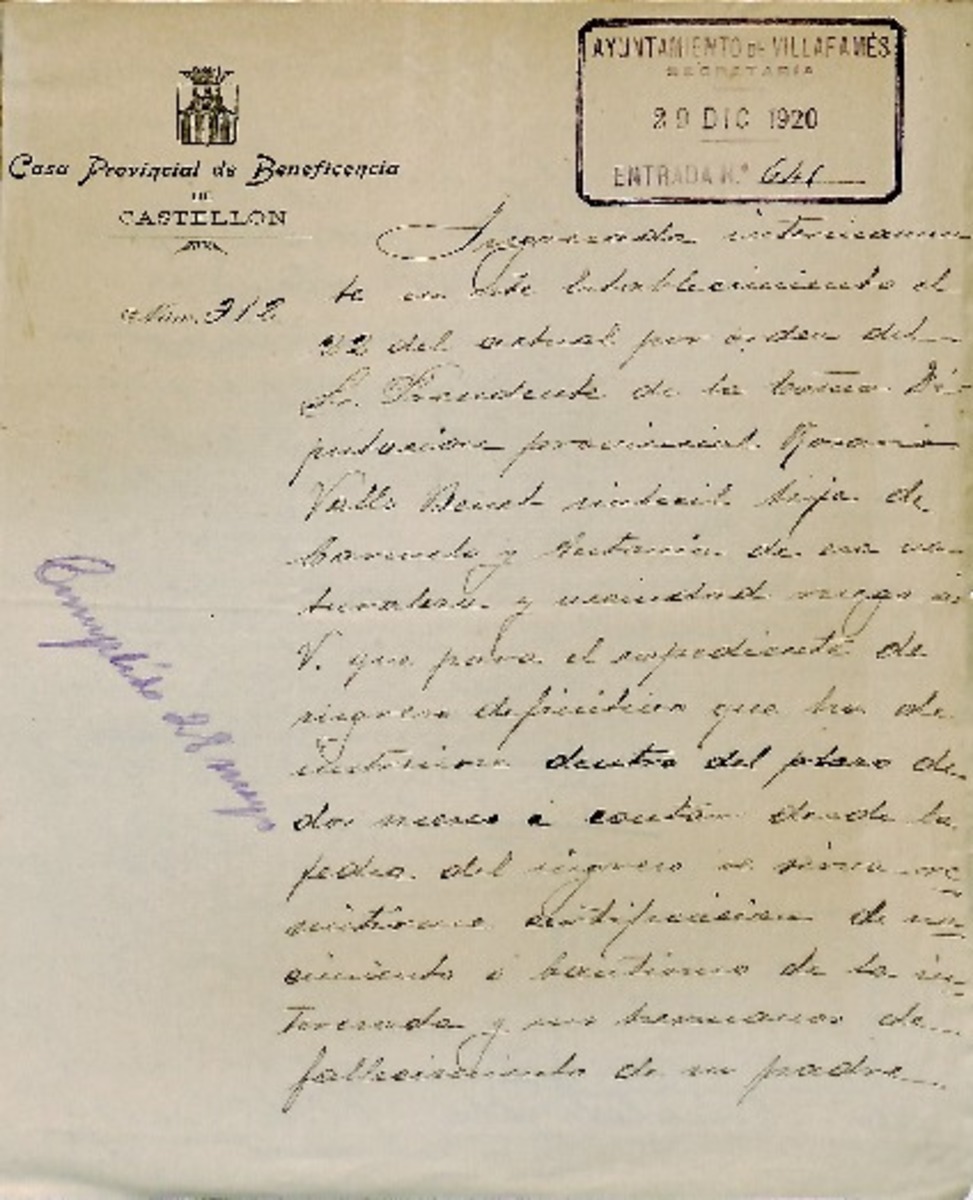 AYUNTAMIENTO DE VILLAFAMÉS
SECRETARÍA
29 DIC 1920
ENTRADA N.º 641
Casa Provincial de Beneficencia
DE
CASTELLON
Núm. 312
Ingresada interinamen
te en este Establecimiento el
22 del actual por orden del
Sr. Presidente de la Excma. Di-
putacion provincial Rosario
Valls Benet hija de
y de esa na-
turaleza y vecindad ruego a
V. que para el expediente de
ingreso definitivo que ha de
dentro del plazo de
dos meses a contar desde la
fecha del ingreso se sirva re-
mitirme certificacion de na-
cimiento o bautismo de la in-
teresada y sus hermanos de
fallecimiento de su padre
Cumplido 28 mayo